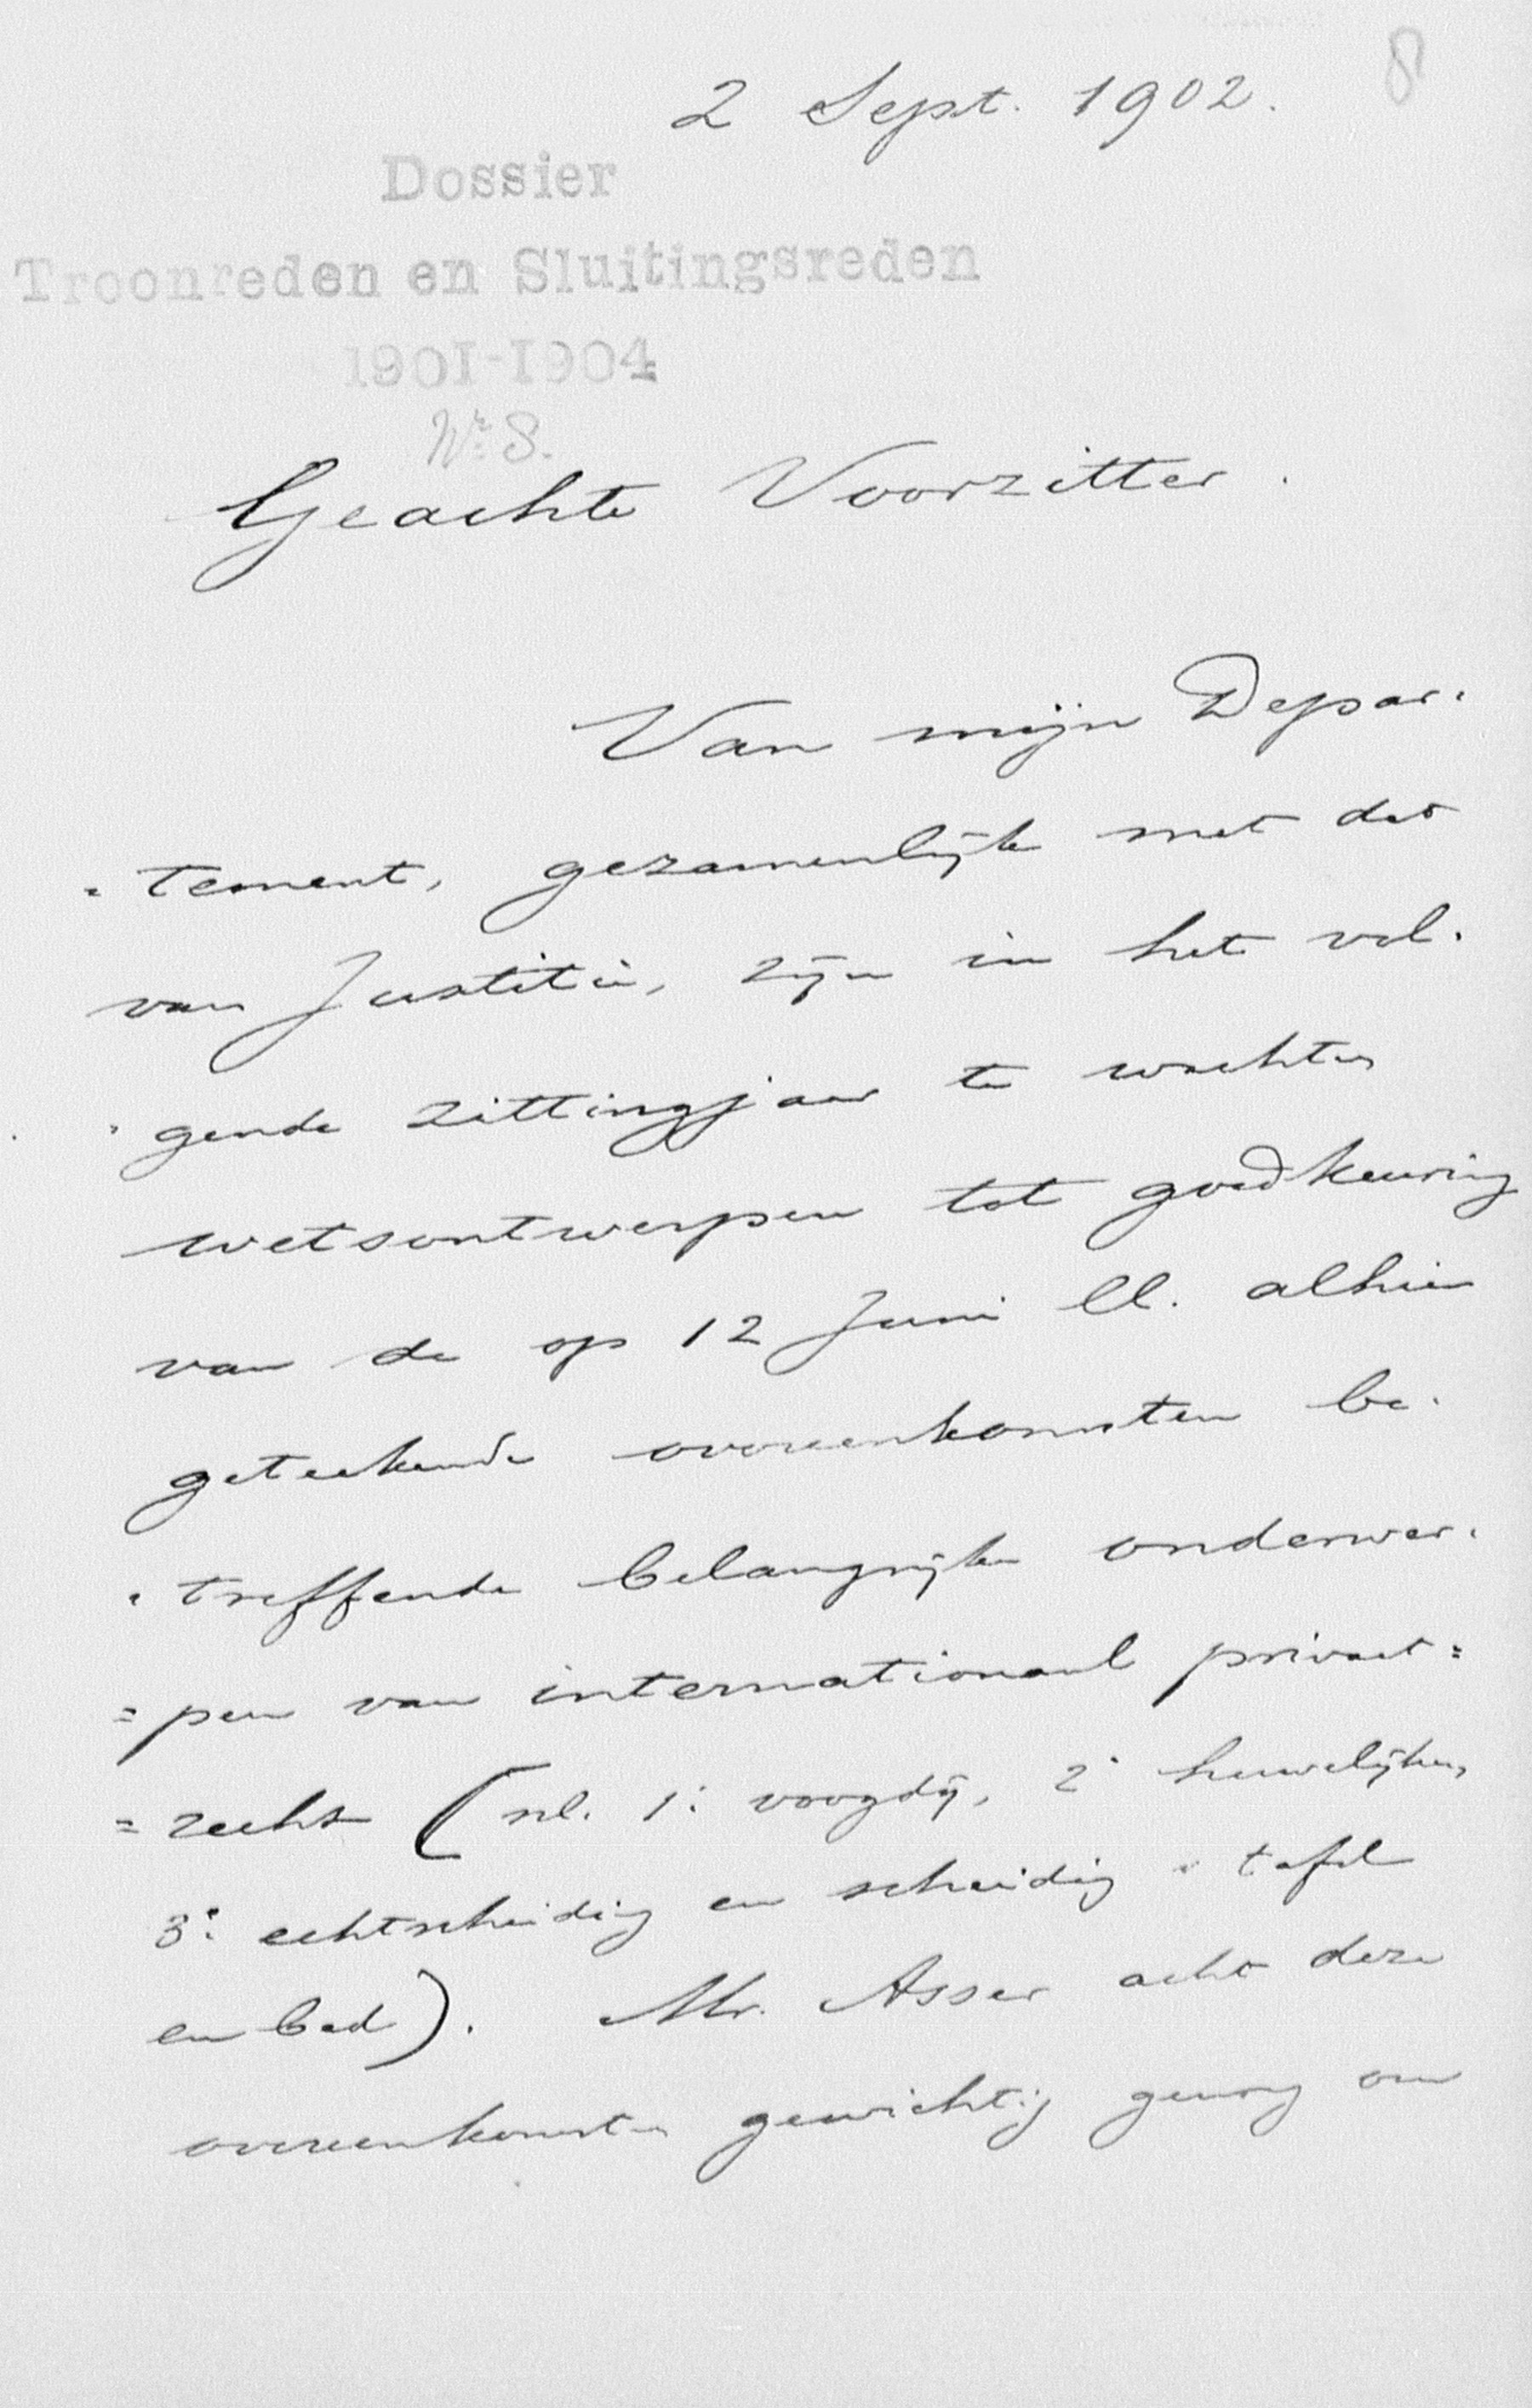 8
2 Sept. 1902.
Dossier
Troonreden en Sluitingsreden
1901-1904
Nr 8.
Geachte Voorzitter.
Van mijn Depar-
-tement, gezamenlijk met dat
van Justitie, zijn in het vol-
-gende zittingjaar te wachten
wetsontwerpen tot goedkeuring
van de op 12 Juni ll. alhier
geteekende overeenkomsten be-
-treffende belangrijke onderwer-
=pen van internationaal privaat=
=recht (nl. 1: voogdij, 2: huwelijken,
3: echtscheiding en scheiding v tafel
en bed). Mr. Asser acht deze
overeenkomsten gewichtig genoeg om